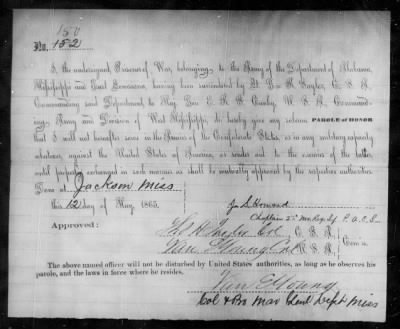 150
No. 152
I, the undersigned Prisoner of War, belonging to the Army of the Department of Alabama,
Mississippi and East Louisiana, having been surrendered by Lt. Gen. R. Taylor, C. S. A.
Commanding said Department to Maj. Gen. E. R. S. Canby, U. S. A. Command-
ing Army and Division of West Mississippi, do hereby give my solemn PAROLE of HONOR
that I will not hereafter serve in the Armies of the Confederate States, or in any military capacity
whatever, against the United States of America, or render aid to the enemies of the latter,
until properly exchanged in such manner as shall be mutually approved by the respective authorities.
Done at Jackson Miss
this 12 day of May, 1865.
Chaplain
Approved:
Col
C. S. A.
Wm E Young Col
U. S. A.
Com's.
The above named officer will not be disturbed by United States authorities, as long as he observes his
parole, and the laws in force where he resides.
Wm E Young
Col & Miss